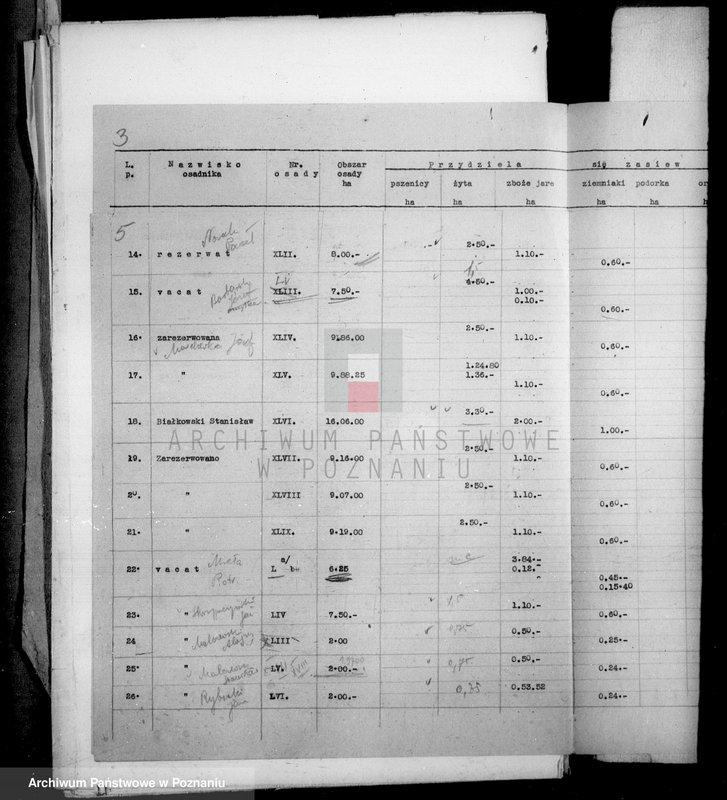 3
L. Nazwisko Nr. Obszar Przydziela się zasiew
p. osadnika osady osady
ha pszenicy żyta zboże jare ziemniaki podorka or
ha ha ha ha ha
5
2.50.-
14. rezerwat XLII. 8.00.- 1.10.-
0.60.-
LV
15. vacat XLIII. 7.50.- 4.50.- 1.00.-
0.10.-
0.60.-
2.50.-
16. zarezerwowana XLIV. 9.86.00 1.10.-
Józef 0.60.-
1.24.80
17. " XLV. 9.88.25 1.36.-
1.10.-
0.60.-
3.30.-
18. Białkowski Stanisław XLVI. 16.06.00 2.00.-
1.00.-
ARCHIWUM PAŃSTWOWE
W POZNANIU
2.50.-
19. Zarezerwowano XLVII. 9.16.00 1.10.-
0.60.-
2.50.-
20. " XLVIII 9.07.00 1.10.-
0.60.-
2.50.-
21. " XLIX. 9.19.00 1.10.-
0.60.-
a/ 3.84.-
22. vacat L 6.25 0.12.-
Piotr 0.45.-
0.15.40
23. " LIV 7.50.- 1.10.-
0.60.-
24 " LIII 2.00 0,75 0.50.-
0.25.-
25. " LV. 2.00.- 0,75 0.50.-
0.24.-
26. " LVI. 2.00.- 0,75 0.53.52
0.24.-
Archiwum Państwowe w Poznaniu